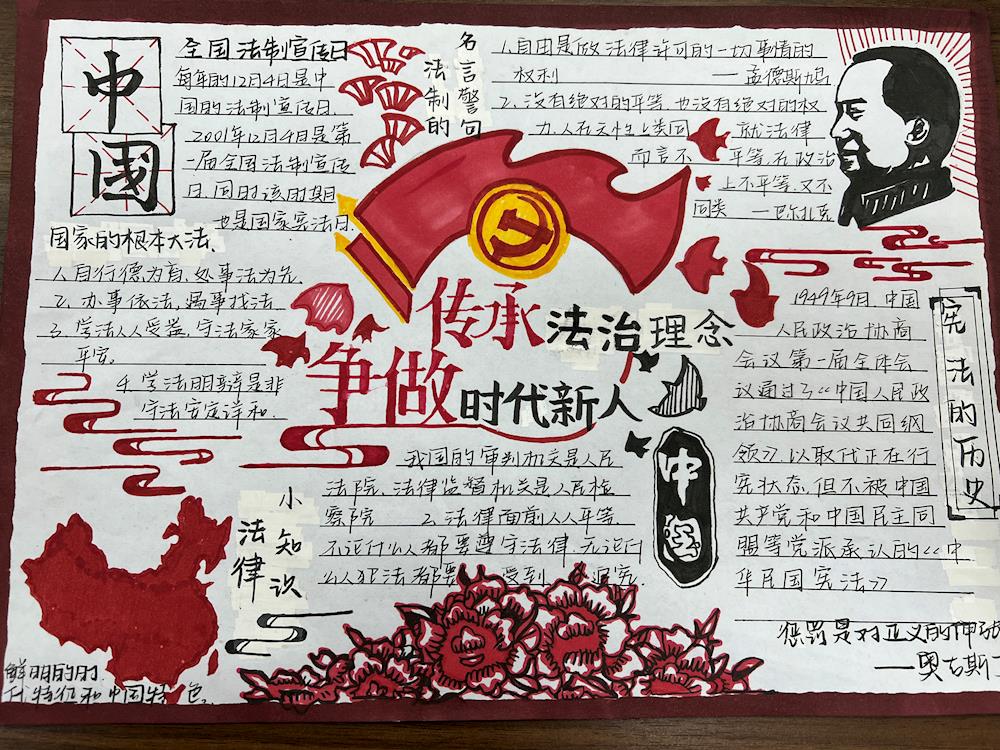 中
國
全国法制宣传日
每年的12月4日是中
国的法制宣传日.
2001年12月4日是第
一届全国法制宣传
日.同时该的期
也是国家宪法日.
法制的
名言警句
1.自由是做法律许可的一切事情的
权利 — 孟德斯鸠
2.没有绝对的平等.也没有绝对的权
力.人在天性上类同 就法律
而言不 平等.在政治
上不平等.又不
同类 —巴尔扎克
国家的根本大法、
1.自行德为首.处事法为先
2.办事依法.遇事找法
3.学法人人受益.守法家家
平安。
4.学法明辨是非
守法安定详和.
传承法治理念
争做时代新人
1949年9月.中国
人民政治协商
会议第一届全体会
议通过了<<中国人民政
治协商会议共同纲
领>>以取代正在行
宪状态.但不被中国
共产党和中国民主同
盟等党派承认的<<中
华民国宪法>>
宪法的历史
我国的审判机关是人民
法院.法律监督机关是人民检
察院 2.法律面前人人平等.
不论什么人都要遵守法律.无论什
么人犯法都要 受到 追究.
法律
小知识
中
惩罚是对正义的伸动
—奥古斯
鲜明的时
代特征和中国特色.